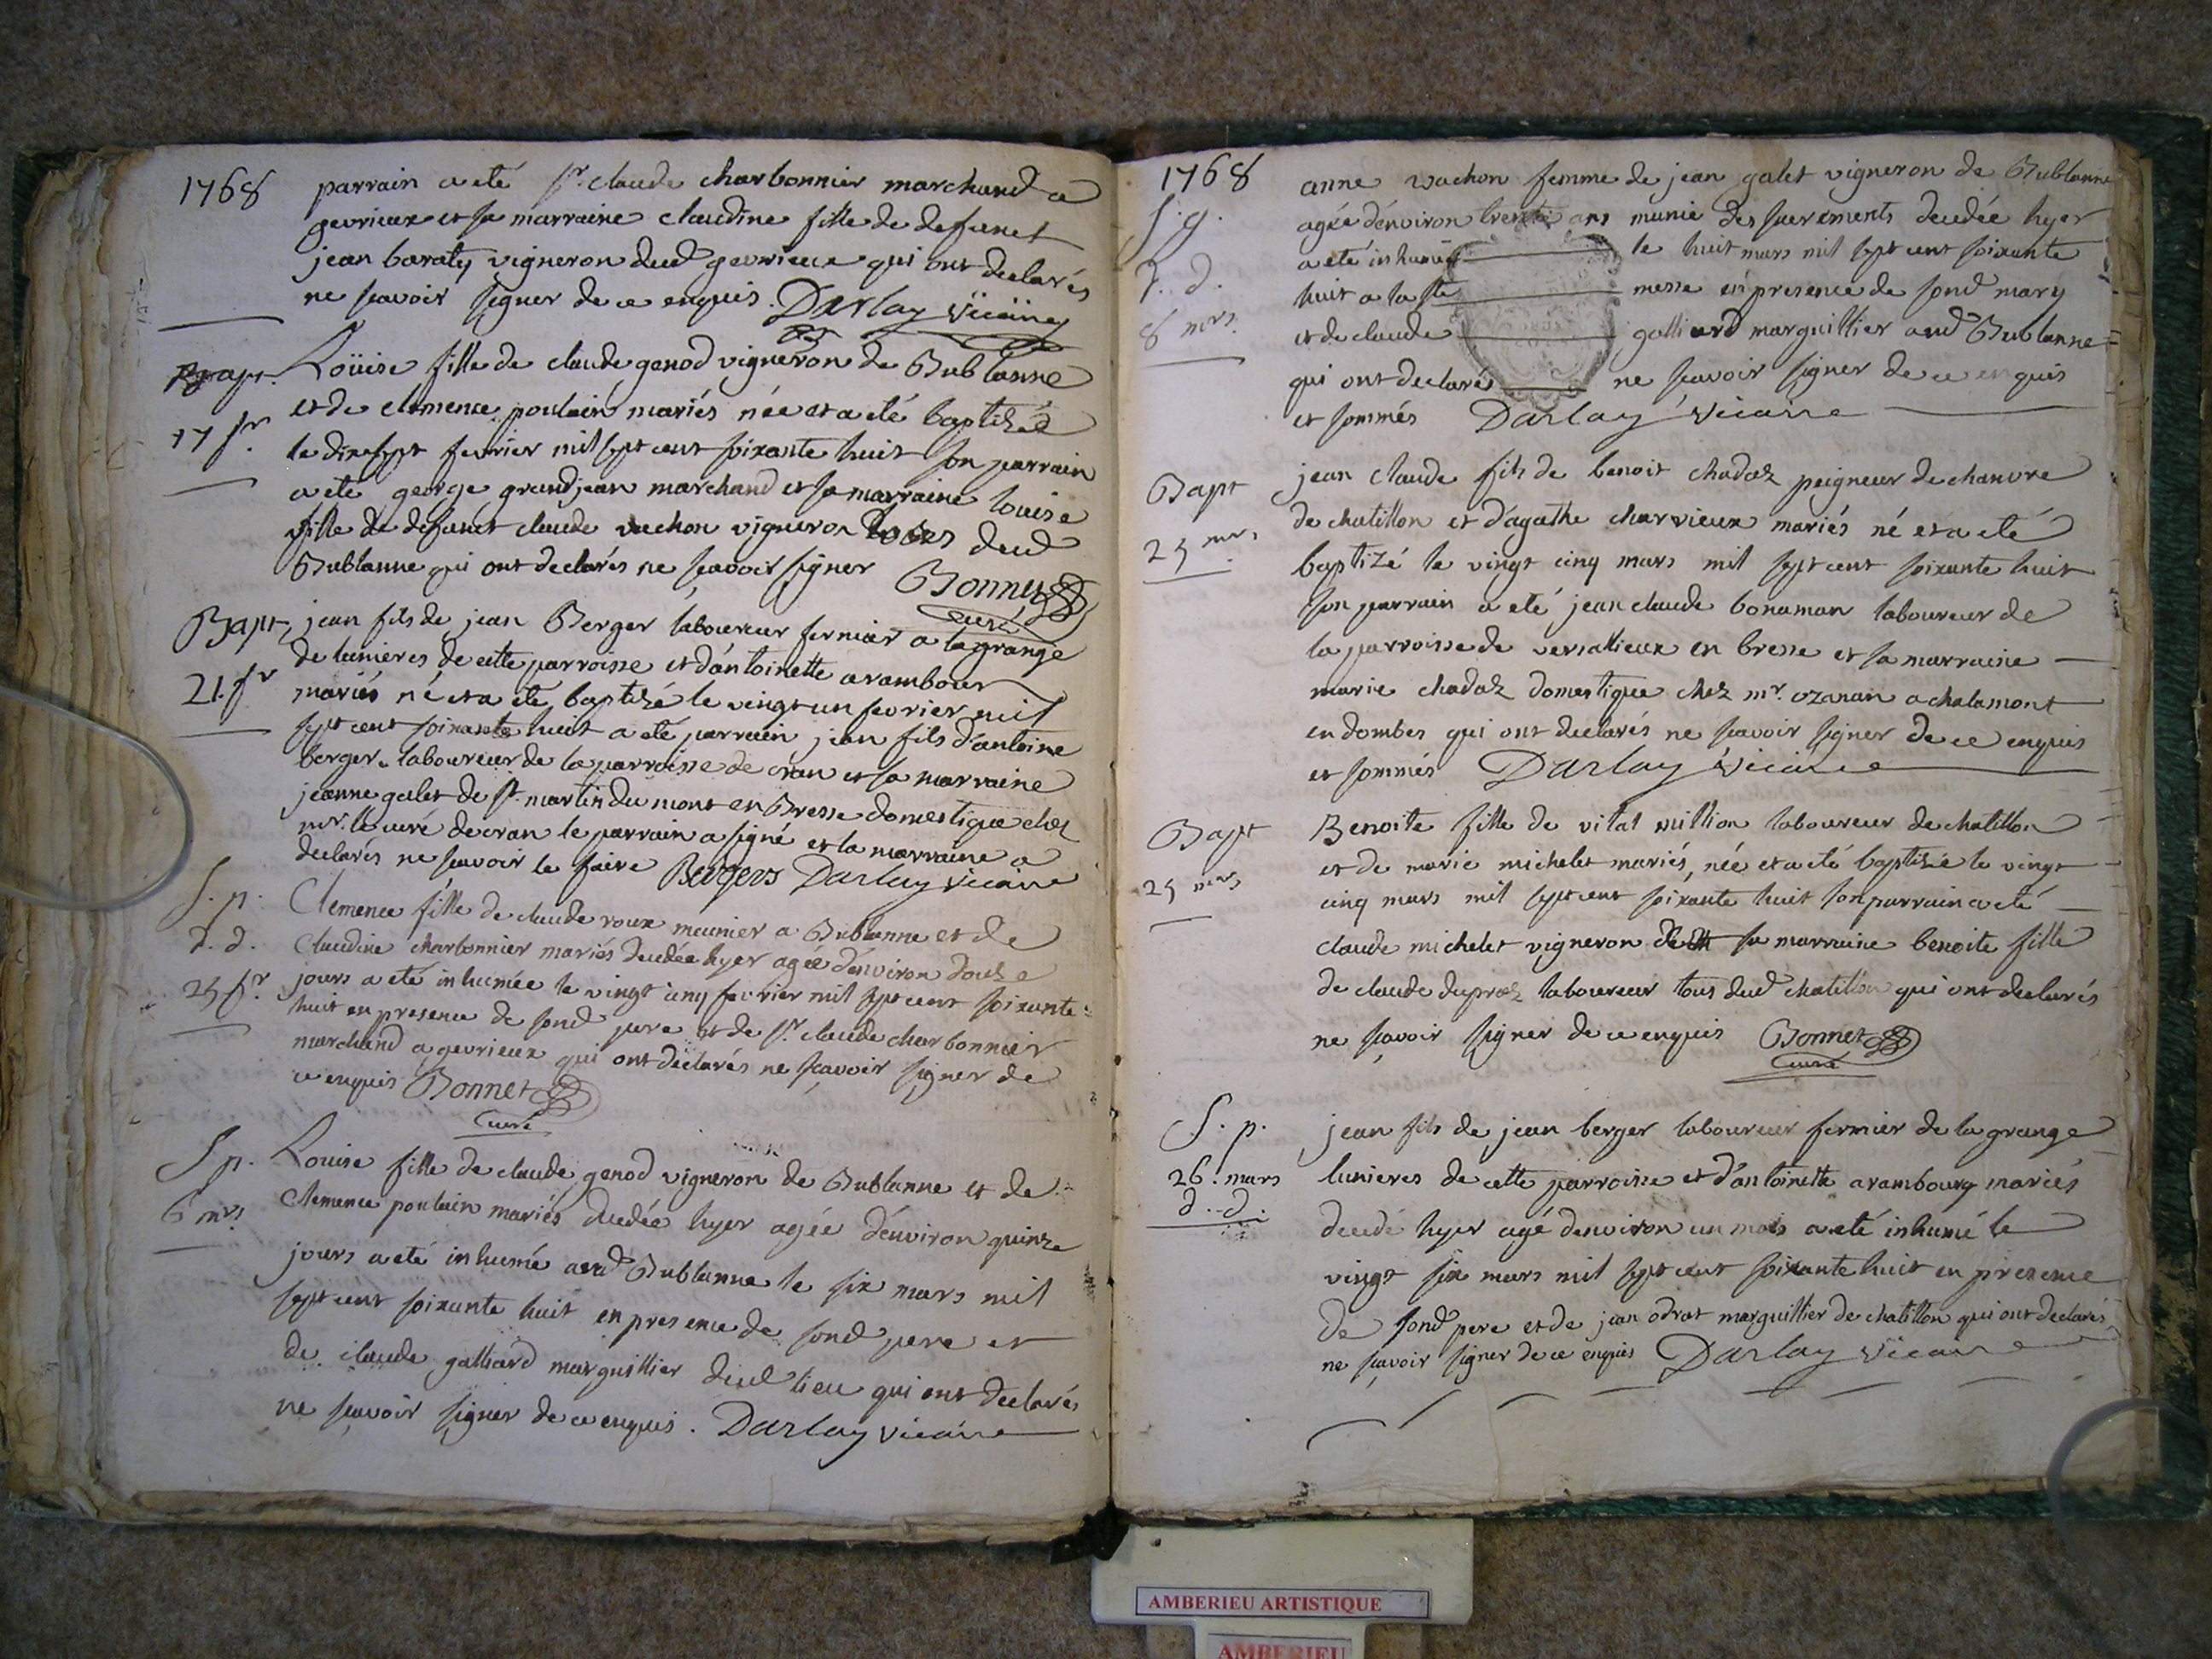 1768
parrain a eté sr. claude charbonnier marchand a
gevrieux et sa marraine claudine fille de defunct
jean baraty vigneron dud gevrieux qui ont declarés
ne scavoir signer de ce enquis. Darlay vicaire
Bapt. Loüise fille de claude genod vigneron de Bublanne
et de clemence poulain mariés née et a eté baptizée
17 fr. le dixsept fevrier mil sept cent soixante huit son parrain
a eté george grandjean marchand et sa marraine louise
fille de defunct claude vachon vigneron tous dud
Bublanne qui ont declarés ne scavoir signer Bonnet
curé
Bapt, jean fils de jean Berger laboureur fermier a la grange
de lunieres de cette parroisse et d'antoinette arambour
21. fr mariés né et a eté baptizé le vingt un fevrier mil
sept cent soixante huit a eté parrain jean fils d'antoine
berger laboureur de la parroisse de cran et sa marraine
jeanne galet de st. martin du mont en Bresse domestique chez
mr. le curé de cran le parrain a signé et la marraine a
declarés ne scavoir le faire Bergers Darlay vicaire
S. p. Clemence fille de claude roux meunier a Bublanne et de
d. d. claudine charbonnier mariés decedée hyer agée d'environ douze
25 fr. jours a eté inhumée le vingt cinq fevrier mil sept cent soixante
huit en presence de sond pere et de sr. claude charbonnier
marchand a gevrieux qui ont declarés ne scavoir signer de
ce enquis Bonnet
curé
S. p. Louise fille de claude genod vigneron de Bublanne et de
6 mrs clemence poulain mariés decedée hyer agée d'environ quinze
jours a eté inhumé aud Bublanne le six mars mil
sept cent soixante huit en presence de sond pere et
de claude galliard marguillier dud lieu qui ont declarés
ne scavoir signer de ce enquis. Darlay vicaire
1768 anne vachon femme de jean galet vigneron de Bublanne
S. g. agée d'environ trente ans munie des sacrements decedée hyer
a eté inhumée le huit mars mil sept cent soixante
d. d. huit a la ste messe en presence de sond mary
8 mrs. et de claude galliard marguillier aud Bublanne
qui ont declarés ne scavoir signer de ce enquis
et sommés Darlay vicaire
Bapt jean claude fils de benoit chadaz peigneur de chanvre
de chatillon et d'agathe charvieux mariés né et a eté
25 mrs baptizé le vingt cinq mars mil sept cent soixante huit
son parrain a eté jean claude bonaman laboureur de
la parroisse de versailleux en bresse et sa marraine
marie chadaz domestique chez mr. ozanan a chalamont
en dombes qui ont declarés ne scavoir signer de ce enquis
et sommés Darlay vicaire
Bapt Benoite fille de vital million laboureur de chatillon
et de marie michelet mariés, née et a eté baptizé le vingt
25 mrs cinq mars mil sept cent soixante huit son parrain a eté
claude michelet vigneron sa marraine benoite fille
de claude dupraz laboureur tous dud chatillon qui ont declarés
ne scavoir signer de ce enquis Bonnet
curé
S. p. jean fils de jean berger laboureur fermier de la grange
26. mars lunieres de cette parroisse et d'antoinette arambourg mariés
d. d. decedé hyer agé denviron un mois a eté inhumé le
vingt six mars mil sept cent soixante huit en presence
de sond pere et de jean odrat marguillier de chatillon qui ont declarés
ne scavoir signer de ce enquis Darlay vicaire
AMBERIEU ARTISTIQUE
AMBERIEU